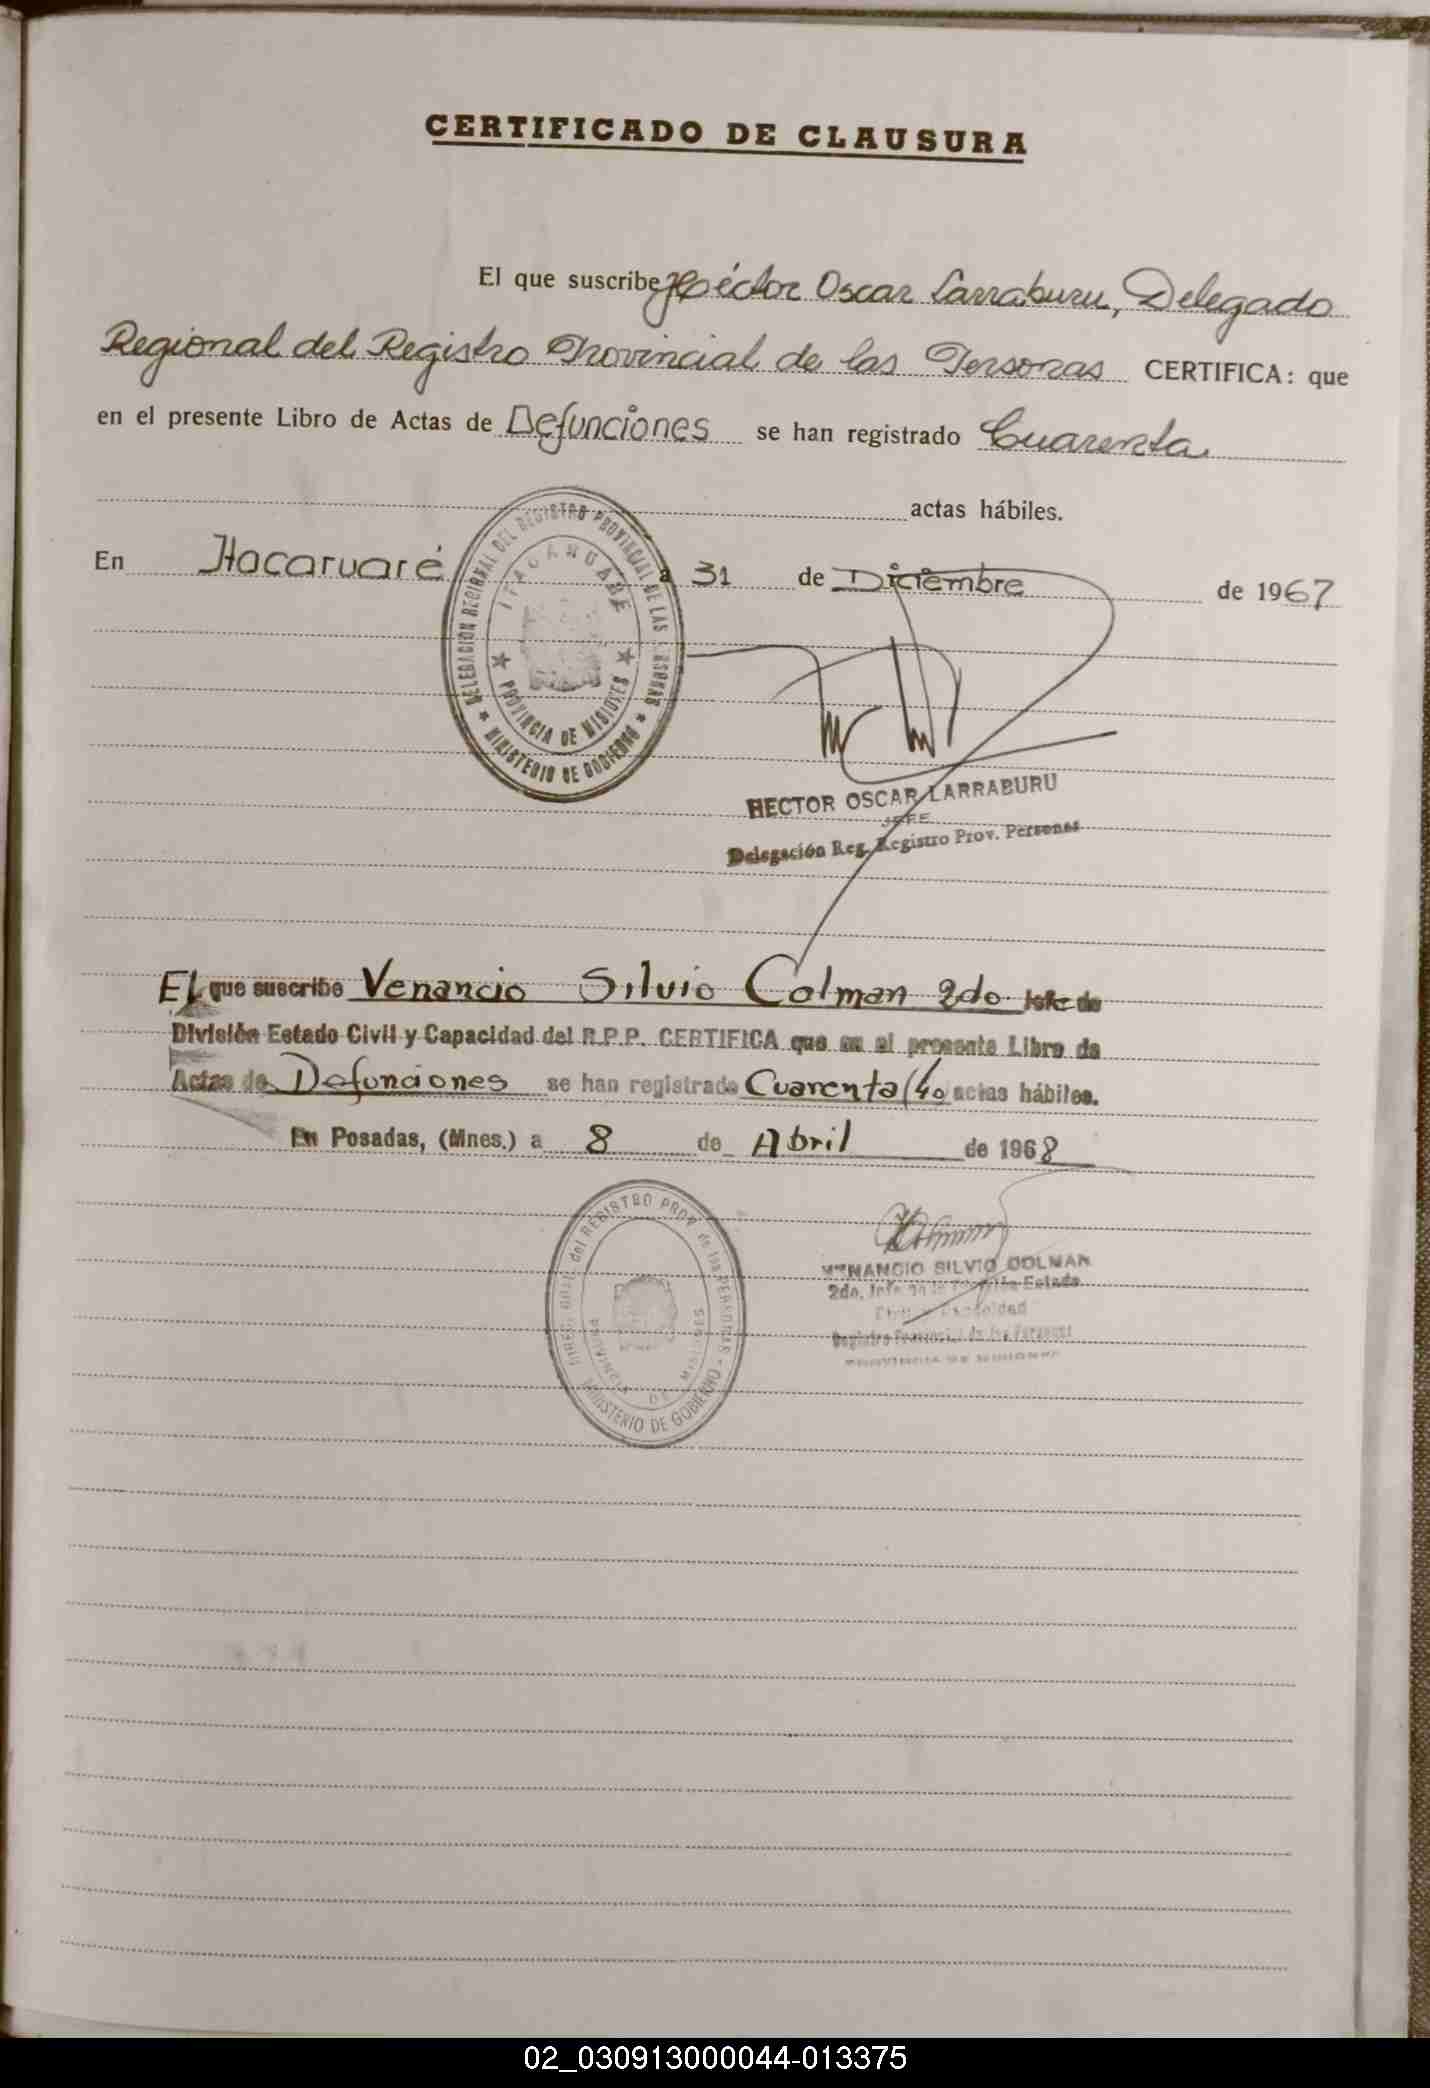 CERTIFICADO DE CLAUSURA
El que suscribe Héctor Oscar Larraburu, Delegado
Regional del Registro Provincial de las Personas CERTIFICA: que
en el presente Libro de Actas de Defunciones se han registrado Cuarenta
actas hábiles.
En Itacaruaré a 31 de Diciembre de 1967
DELEGACION REGIONAL DEL REGISTRO PROVINCIAL DE LAS PERSONAS
ITACARUARE
PROVINCIA DE MISIONES
MINISTERIO DE GOBIERNO
HECTOR OSCAR LARRABURU
JEFE
Delegación Reg. Registro Prov. Personas
El que suscribe Venancio Silvio Colman 2do Jefe de
División Estado Civil y Capacidad del R.P.P. CERTIFICA que en el presente Libro de
Actas de Defunciones se han registrado Cuarenta (40 actas hábiles.
En Posadas, (Mnes.) a 8 de Abril de 1968
DIREC. GRAL. del REGISTRO PROV. de las PERSONAS
PROVINCIA DE MISIONES
MINISTERIO DE GOBIERNO
VENANCIO SILVIO COLMAN
2do. Jefe de la División Estado
Civil y Capacidad
Registro Provincial de las Personas
PROVINCIA DE MISIONES
02_030913000044-013375